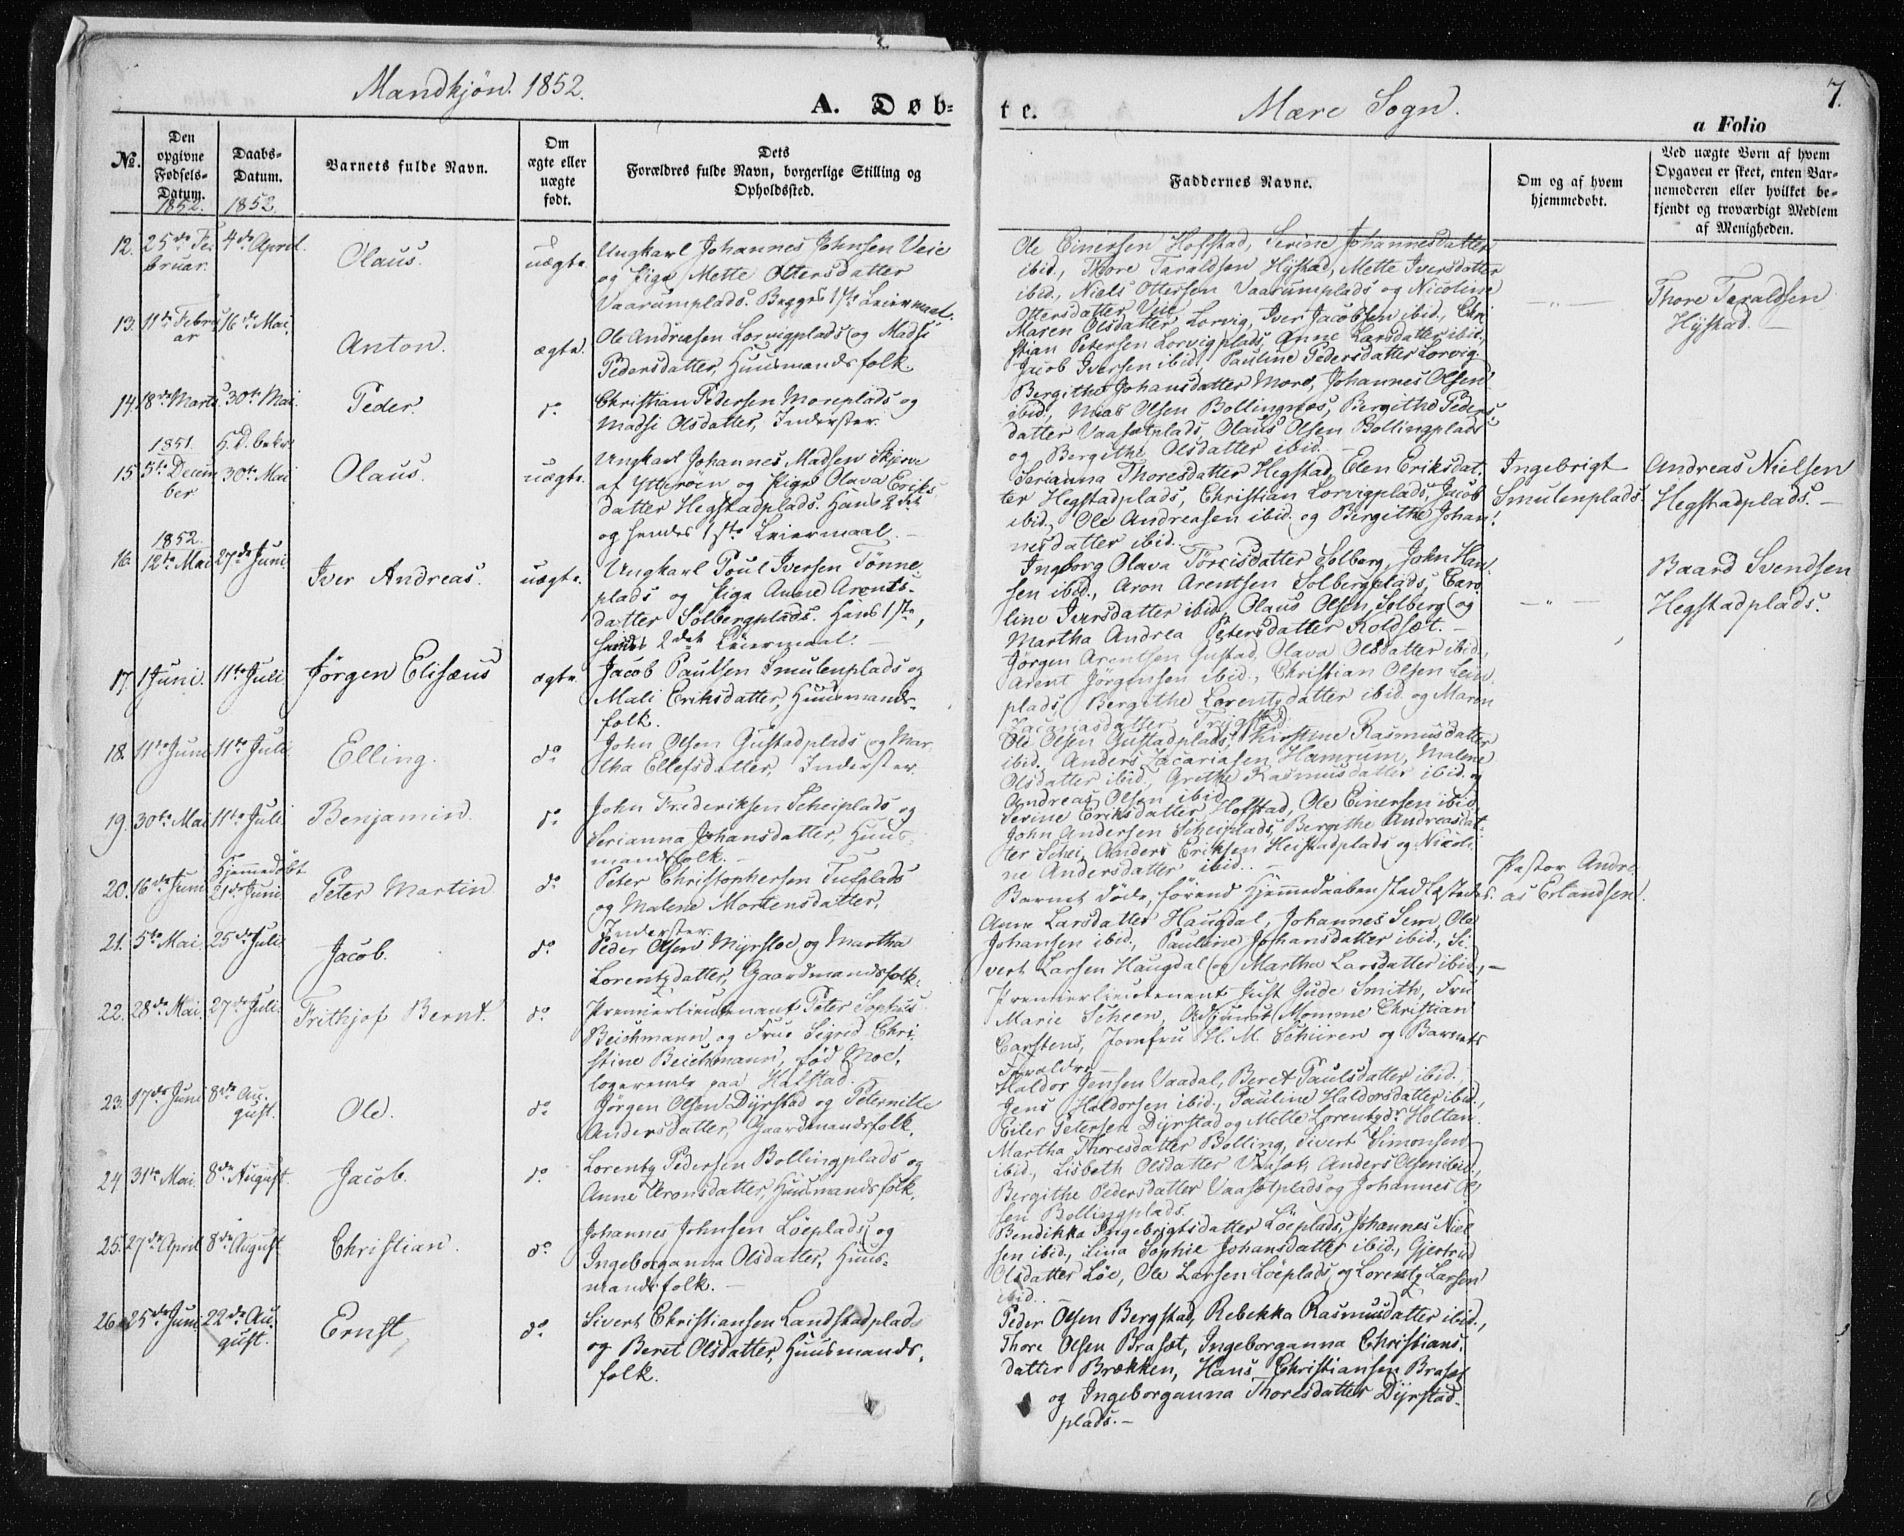 Mandkjøn. 1852.
A. Døb-
te.
Mære Sogn.
7.
a Folio
No.
Den opgivne Fødsels-Datum.
1852.
Daabs-Datum.
1852.
Barnets fulde Navn.
Om ægte eller uægte født.
Dets Forældres fulde Navn, borgerlige Stilling og Opholdssted.
Faddernes Navne.
Om og af hvem hjemmedøbt.
Ved uægte Børn af hvem
Opgaven er skeet, enten Bar-
nemoderen eller hvilket be-
kjendt og troværdigt Medlem
af Menigheden.
12. 25de Fe-
bruar. 4de April.
Olaus.
uægte.
Ungkarl Johannes Johnsen Veie
og Pige Mette Ottersdatter
Vaarumplads. Begges 1ste Leiermaal.
Ole Einersen Hofstad, Serine Johannesdatter
ibid., Thore Taraldsen Hÿstad, Mette Iversdatter
ibid., Niels Ottersen Vaarumplads og Nicoline
Ottersdatter Veie.
Thore Taraldsen
Hÿstad.
13. 11te Febru-
ar 16de Mai.
Anton.
ægte.
Ole Andreasen Lorvigplads og Madsi
Pedersdatter, Huusmandsfolk.
Maren Olsdatter Lorvig, Iver Jacobsen ibid., Chri-
stian Petersen Lorvigplads, Anne Larsdatter ibid.,
Jacob Iversen ibid., Pauline Pedersdatter Lorvig.
14. 18de Marts 30te Mai.
Peder.
do
Christian Pedersen Moreplads og
Madsi Olsdatter, Inderster.
Bergithe Johansdatter More, Johannes Olsen
ibid., Olsen Bollingnæs, Bergithe Peders-
datter Vaasetplads, Olaus Olsen Bollingplads
og Bergithe Olsdatter ibid.
1851. H. D. bekr.
15. 5te Decem-
ber 30te Mai
Olaus.
uægte.
Ungkarl Johannes Madsen Skjerve
af Ytterøen og Pige Olava Eriks-
datter Hegstadplads. Hans 2det
og hendes 1ste Leiermaal.
Serianna Thoresdatter Hegstad, Elen Eriksdat-
ter Hegstadplads, Christian Lorvigplads, Jacob
ibid. Ole Andreasen ibid. og Bergithe Johan-
nesdatter ibid.
Ingebrigt
Smulenplads.
Andreas Nielsen
Hegstadplads.
1852.
16. 12te Mai 27de Juni.
Iver Andreas.
uægte.
Ungkarl Poul Iversen Tønne-
plads og Pige Anne Arents-
datter Solbergplads. Hans 1ste,
hendes 2det Leiermaal.
Ingeborg Olava Tørrisdatter Solberg, John Han-
sen ibid., Aron Arentsen Solbergplads, Caro-
line Iversdatter ibid., Olaus Olsen Solberg og
Martha Andrea Petersdatter Koldsæt.
Baard Svendsen
Hegstadplads.
17. 1 Juni. 11te Juli.
Jørgen Elisæus
ægte.
Jacob Paulsen Smulenplads og
Mali Eriksdatter, Huusmands-
folk.
Jørgen Arentsen Gustad, Olava Olsdatter ibid.,
Arent Jørgensen ibid., Christian Olsen Lein-
plads, Bergithe Lorentzdatter ibid. og Maren
Zacariasdatter
18. 11te Juni 11te Juli
Elling.
do
John Olsen Gustadplads og Mar-
tha Ellefsdatter, Inderster.
Ole Olsen Gustadplads, Kirstine Rasmusdatter
ibid. Anders Zacariasen Hamrum, Malene
Olsdatter ibid., Grethe Rasmusdatter ibid. og
Andreas Olsen ibid.
19. 30te Mai 11te Juli
Benjamin.
do
John Frederiksen Scheiplads og
Serianna Johansdatter, Huus-
mandsfolk.
Serine Eriksdatter Hofstad, Ole Einersen ibid.
John Andersen Scheiplads, Bergithe Andreasdat-
ter Schei, Anders Eriksen Heistadplads og Nicoli-
ne Andersdatter ibid.
20. 16de Juni Hjemmedøbt
21de Juni.
Peter Martin
do
Peter Christophersen Tuvplads
og Malene Mortensdatter,
Inderster.
Barnet døde, førend Hjemmedaaben stadfæstedes.
Pastor Andre-
as Erlandsen.
21. 5te Mai. 25de Juli.
Jacob.
do
Peder Olsen Myrstoe og Martha
Lorentzdatter, Gaardmandsfolk.
Anne Larsdatter Haugdal, Johannes Sem, Ole
Johansen ibid., Pauline Johansdatter ibid., Si-
vert Larsen Haugdal og Martha Larsdatter ibid.
22. 28de Mai. 27de Juli.
Frithjof Bernt.
do
Premierlieutenant Peter Sophus
Beichmann og Frue Sigrid Chri-
stine Beichmann, fød Moe,
logerende paa Halstad.
Premierlieutenant Just Gude Smith, Fru
Marie Scheen, Adjunct Momme Christian
Carstens, Jomfru H. M. Schiiren og Barnets
Forældre.
23. 17de Juni 8de Au-
gust.
Ole.
do
Jørgen Olsen Dyrstad og Peternille
Andersdatter, Gaardmandsfolk.
Haldor Jensen Vaadal, Beret Paulsdatter ibid.
Jens Haldorsen ibid., Pauline Haldorsdatter ibid.,
Eiler Petersen Dyrstad og Mette Lorentzdr Holtan.
24 31te Mai. 8de August.
Jacob.
do
Lorentz Pedersen Bollingplads og
Anne Aronsdatter, Huusmandsfolk.
Martha Thoresdatter Bolling, Sivert Simonsen
ibid., Lisbeth Olsdatter Vaaset, Anders Olsen ibid.,
Bergithe Pedersdatter Vaasetplads og Johannes Ol-
sen Bollingplads.
25. 27de April 8de August
Christian.
do
Johannes Johnsen Løeplads og
Ingeborganna Olsdatter, Huus-
mandsfolk.
Bendikka Ingebrigtsdatter Løeplads, Johannes Niel-
sen ibid., Lina Sophie Johansdatter ibid., Gjertrud
Olsdatter Løe, Ole Larsen Løeplads og Lorentz Larsen
ibid.
26. 25de Juni 22de Au-
gust.
Ernst,
do
Sivert Christiansen Landstadplads
og Beret Olsdatter, Huusmands-
folk.
Peder Olsen Bergstad, Rebekka Rasmusdatter ibid.,
Thore Olsen Braset, Ingeborganna Christians-
datter Brækken, Hans Christiansen Braset
og Ingeborganna Thoresdatter Dyrstad-
plads.